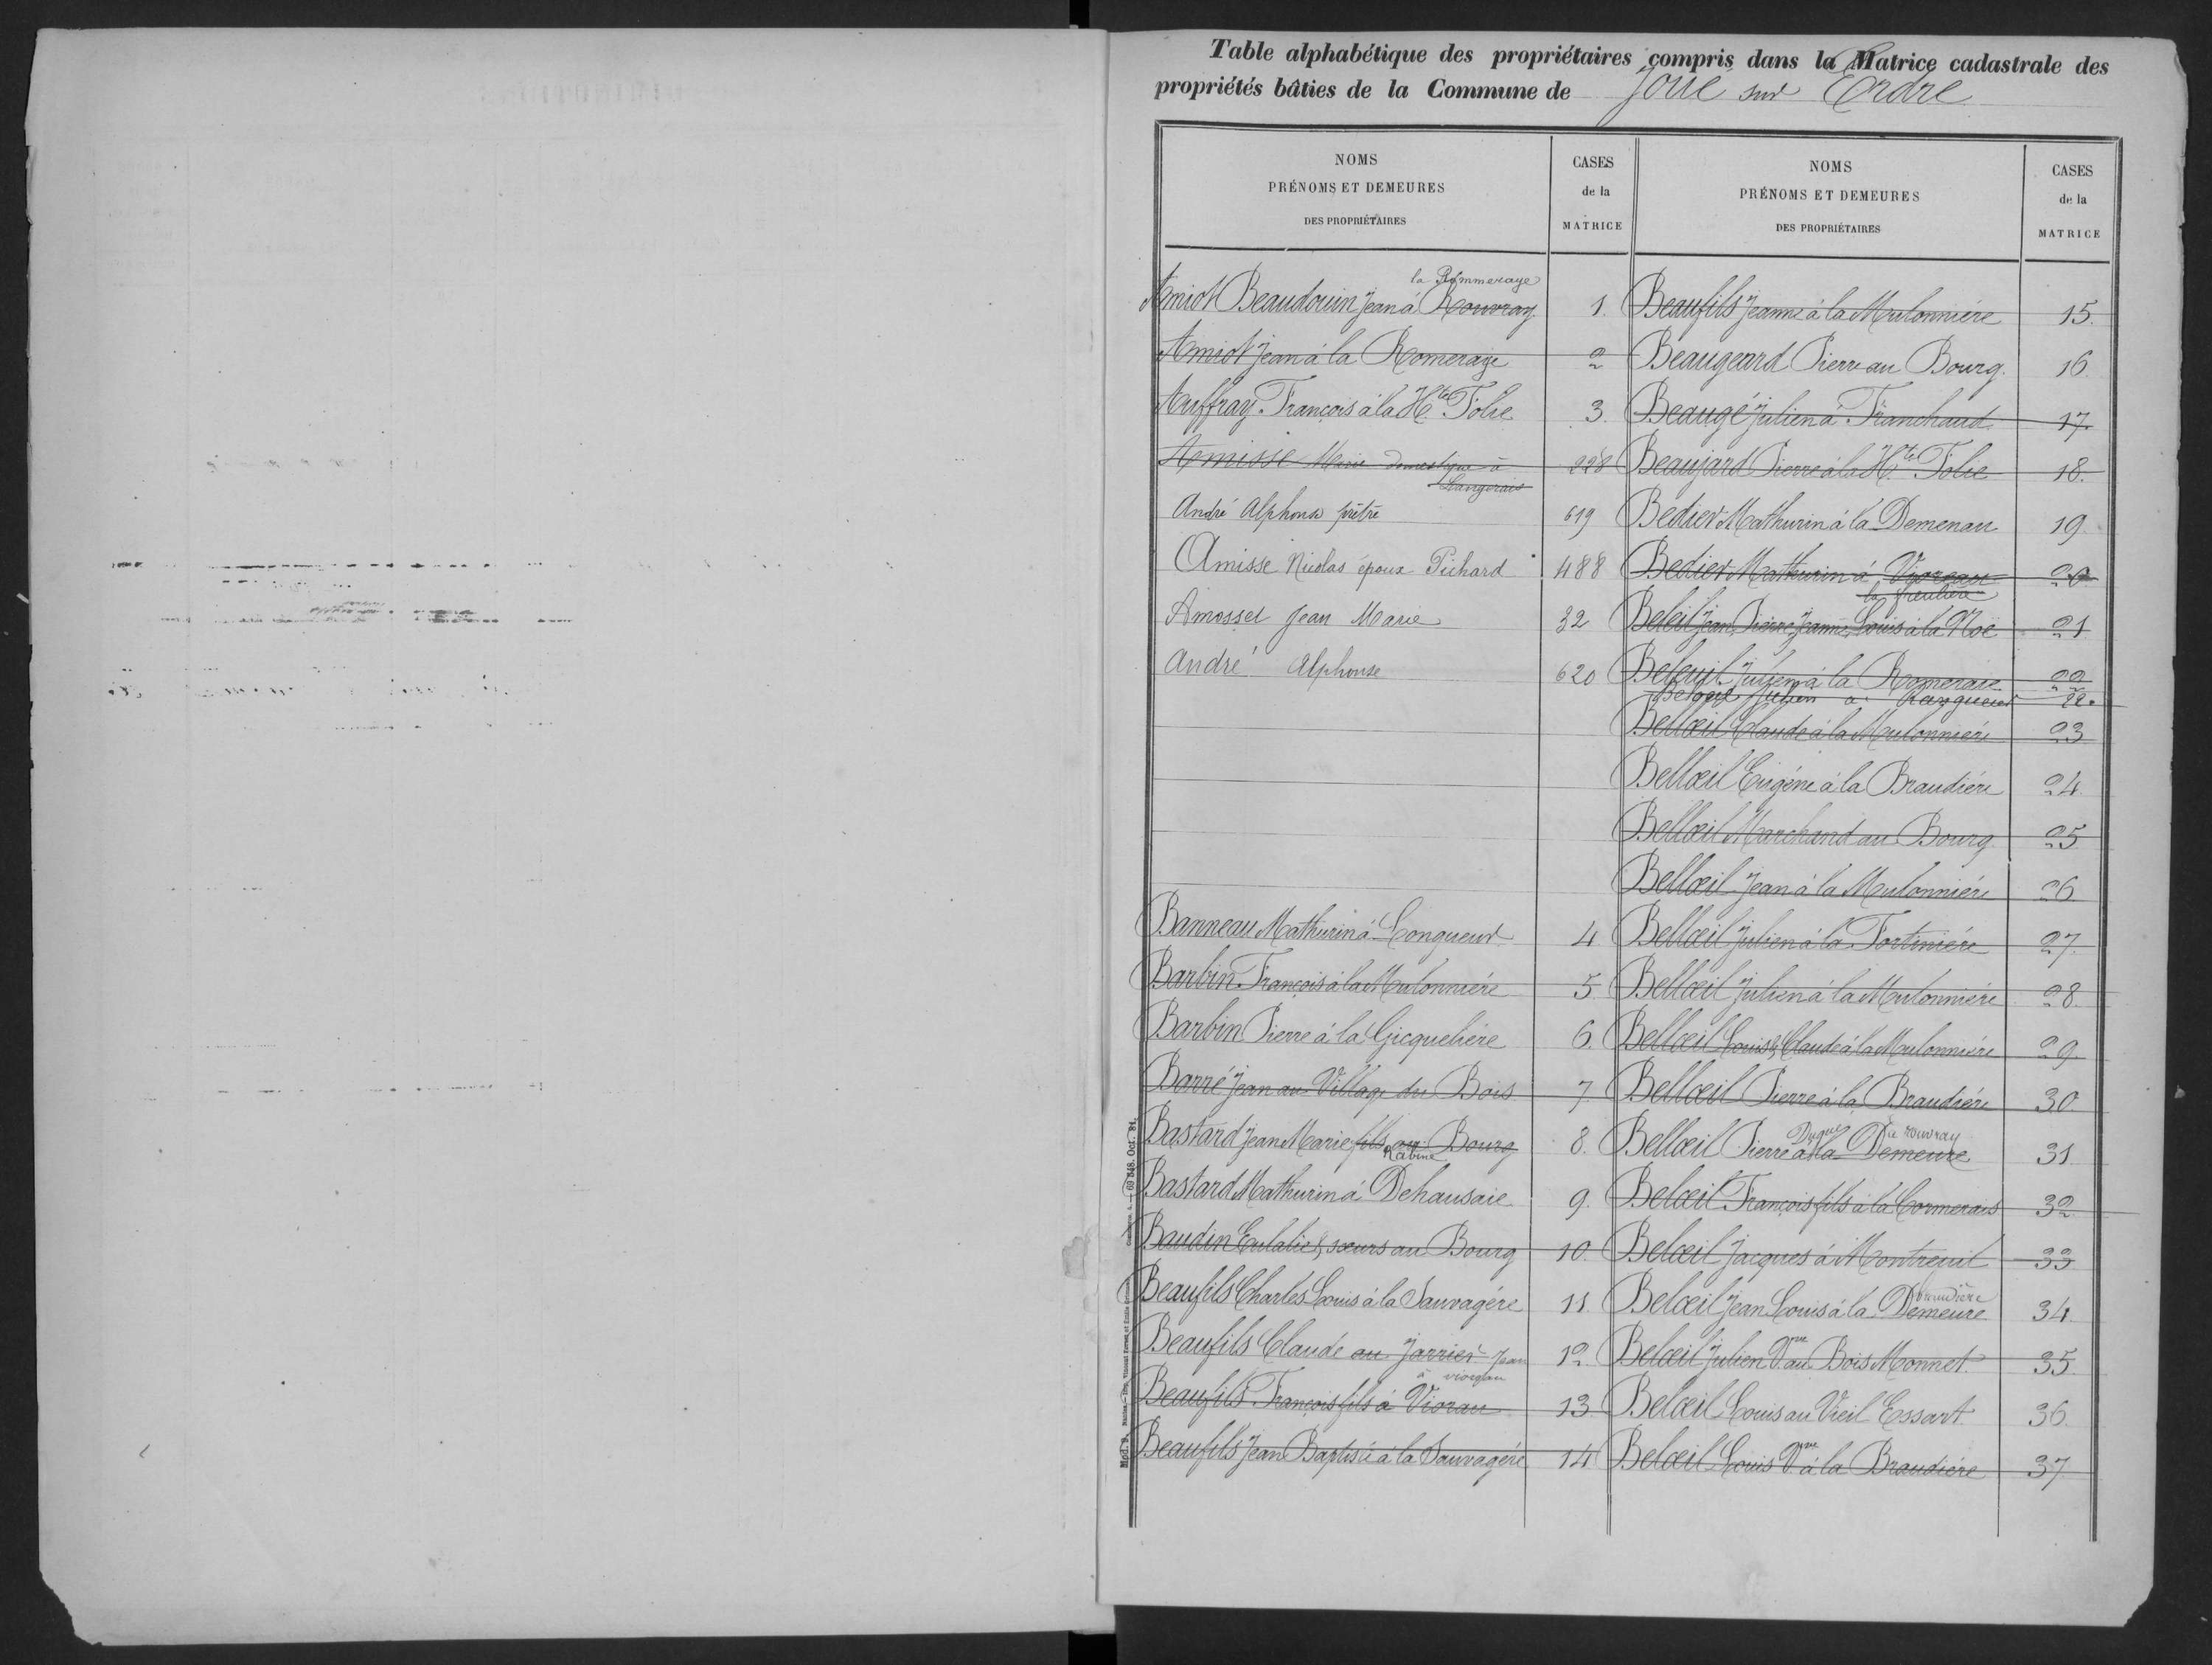 Table alphabétique des propriétaires compris dans la Matrice cadastrale des
propriétés bâties de la Commune de Joué sur Erdre
NOMS
PRÉNOMS ET DEMEURES
DES PROPRIÉTAIRES
CASES
de la
MATRICE
la Pommeraye
Amiot Beaudouin Jean á Rouvray 1.
Amiot Jean á la Romeraye 2
Auffray François á la Hte Folie 3.
Amisse Marie domestique à 228
Langerais
André Alphonse prêtre 619
Amisse Nicolas époux Pichard 488
Amossel Jean Marie 32
André Alphonse 620
Banneau Mathurin á Longueur 4.
Barbin François á la Mulonnière 5.
Barbin Pierre á la Gicquelière 6.
Barré Jean au Village du Bois 7.
Bastard Jean Marie fils au Bourg 8.
Rabine
Bastard Mathurin á Dehausaie 9.
Baudin Eulalie & sœurs au Bourg 10.
Beaufils Charles Louis á la Sauvagére 11.
Beaufils Claude au Jarrier Jean 12.
à vioreau
Beaufils François fils á Viorau 13
Beaufils Jean Baptiste á la Sauvagére 14
NOMS
PRÉNOMS ET DEMEURES
DES PROPRIÉTAIRES
CASES
de la
MATRICE
Beaufils Jeanne á la Mulonnière 15.
Beaugeard Pierre au Bourg. 16
Beaugé Julien á Franchaud 17.
Beaujard Pierre á la Hte Folie 18.
Bedier Mathurin á la Demenau 19.
Bedier Mathurin á Vioreau 20
Beleil Jean, Pierre, Jeanne, Louis á la Noë 21
Beleuil Julien á la Romeraie 22
Beloeil Julien a 22.
Bellœil Claude á la Mulonnière 23
Bellœil Eugéne á la Braudiére 24.
Bellœil Marchand au Bourg 25
Bellœil Jean á la Mulonniére 26
Bellœil Julien á la Fortiniére 27.
Bellœil Julien á la Mulonniére 28.
Bellœil Louis & Claude á la Mulonniére 29.
Bellœil Pierre á la Braudiére 30.
rouvray
Bellœil Pierre á la Demeure 31
Belœil François fils á la Cormerais 32
Belœil Jacques á Montreuil 33
braudière
Belœil Jean Louis á la Demeure 34.
Belœil Julien Vve au Bois Monnet 35.
Belœil Louis au Vieil Essart 36.
Belœil Louis Vve á la Braudiére 37